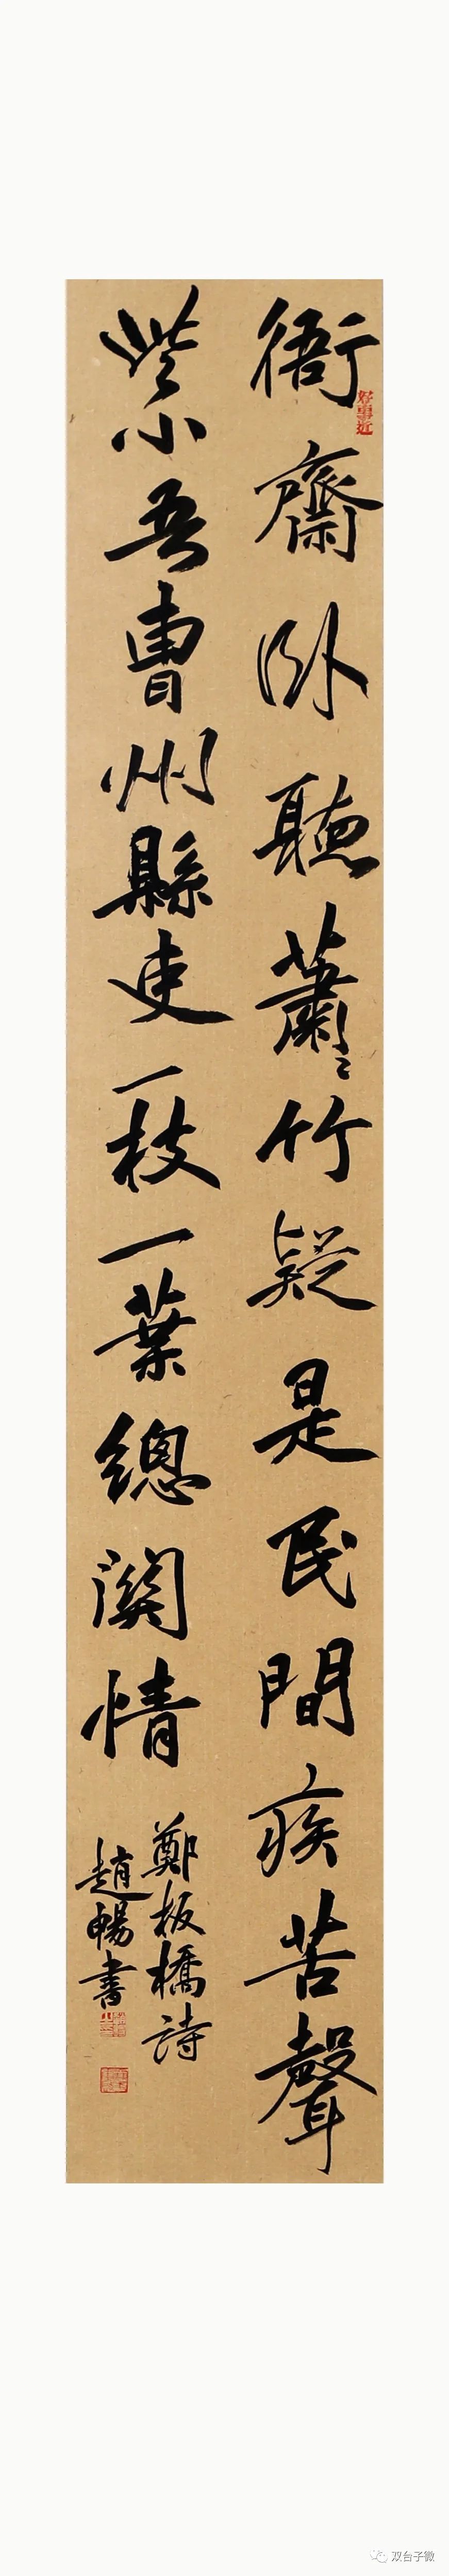 衙齋卧聽蕭〻竹疑是民間疾苦聲
些小吾曹州縣吏一枝一葉總関情
鄭板橋詩
趙暢書
好事近
双台子微